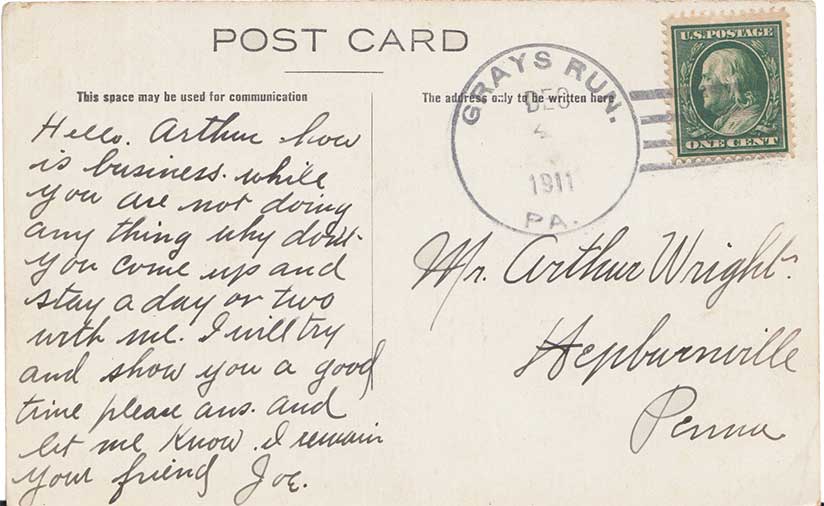 POST CARD
This space may be used for communication
Hello. Arthur how
is business. while
you are not doing
any thing why don't
you come up and
stay a day or two
with me. I will try
and show you a good
time please ans. and
let me Know. I remain
your friend Joe.
The address only to be written here
GRAYS RUN.
DEC
1911
PA.
U.S. POSTAGE
ONE CENT
Mr. Arthur Wright.
Hepburnville
Penna